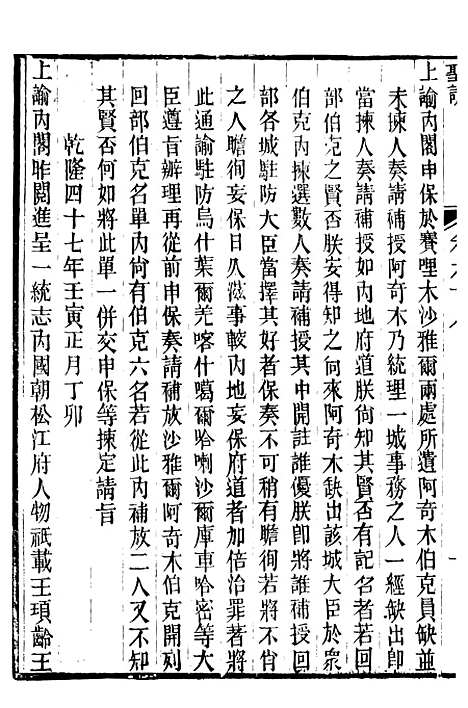 聖訓
上諭內閣申保於賽哩木沙雅爾兩處所遺阿奇木伯克員缺並
未揀人奏請補授阿奇木乃統理一城事務之人一經缺出即
當揀人奏請補授如內地府道朕尙知其賢否有記名者若回
部伯克之賢否朕安得知之向來阿奇木缺出該城大臣於衆
伯克內揀選數人奏請補授其中開註誰優朕卽將誰補授回
部各城駐防大臣當擇其好者保奏不可稍有瞻徇若將不好
之人瞻徇妄保日久滋事較內地妄保府道者加倍治罪著將
此通諭駐防烏什葉爾羌喀什噶爾哈喇沙爾庫車哈密等大
臣遵旨辦理再從前申保奏請補放沙雅爾阿奇木伯克開列
回部伯克名單內尙有伯克六名若從此內補放二人又不知
其賢否何如將此單一併交申保等揀定請旨
乾隆四十七年壬寅正月丁卯
上諭內閣昨閱進呈一統志內國朝松江府人物祇載王頊齡王